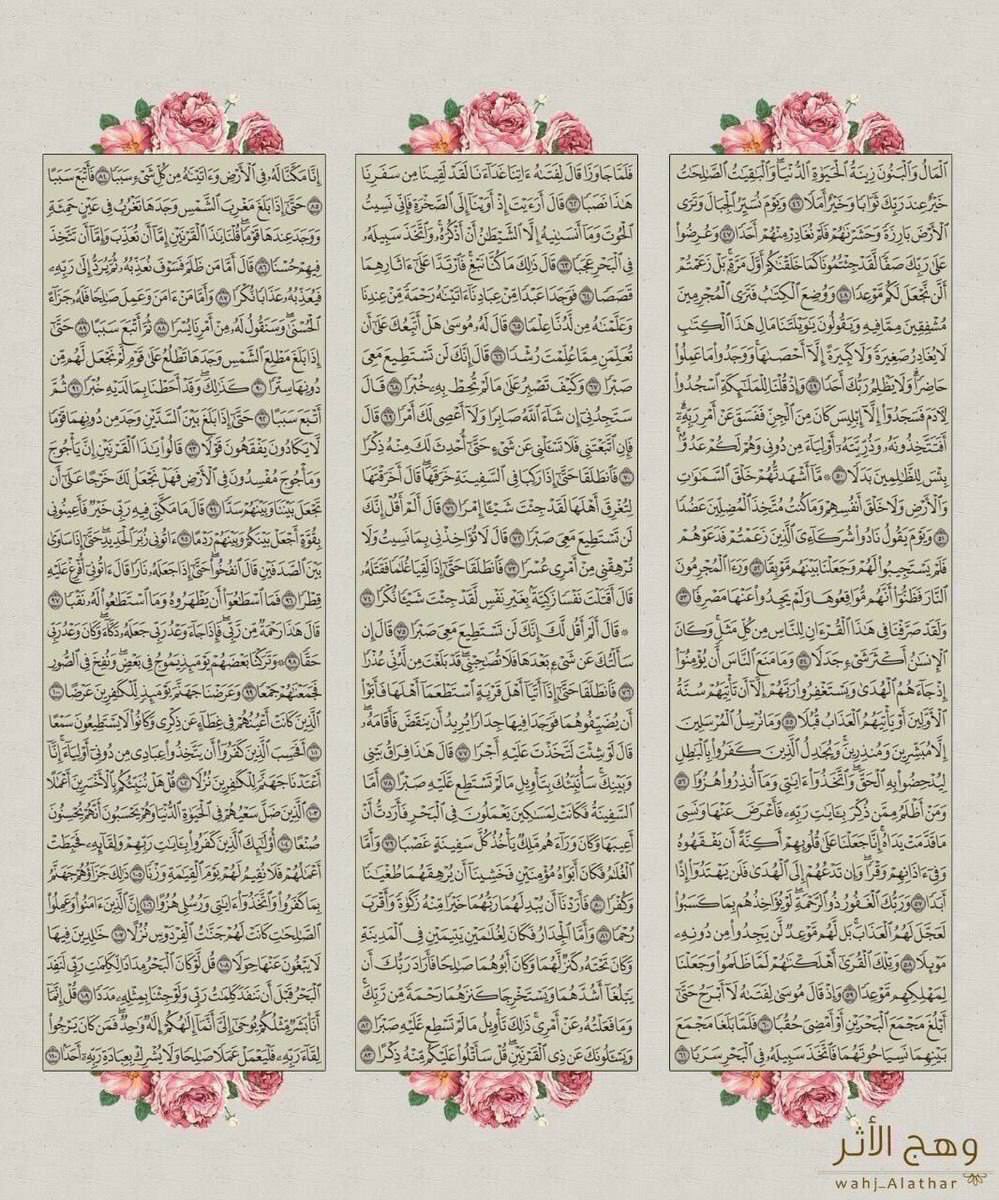 المال والبنون زينة الحيوة الدنيا والبقيت الصلحت
خير عند ربك ثوابا وخير أملا ٤٦ ويوم نسير الجبال وترى
الأرض بارزة وحشرنهم فلم نغادر منهم أحدا ٤٧ وعرضوا
على ربك صفا لقد جئتمونا كما خلقنكم أول مرة بل زعمتم
ألن نجعل لكم موعدا ٤٨ ووضع الكتب فترى المجرمين
مشفقين مما فيه ويقولون يويلتنا مال هذا الكتب
لا يغادر صغيرة ولا كبيرة إلا أحصىها ووجدوا ما عملوا
حاضرا ولا يظلم ربك أحدا ٤٩ وإذ قلنا للملئكة اسجدوا
لأدم فسجدوا إلا إبليس كان من الجن ففسق عن أمر ربه
أفتتخذونه وذريته أولياء من دوني وهم لكم عدو
بئس للظلمين بدلا ٥٠ ۞ ما أشهدتهم خلق السموت
والأرض ولا خلق أنفسهم وما كنت متخذ المضلين عضدا
٥١ ويوم يقول نادوا شركاءي الذين زعمتم فدعوهم
فلم يستجيبوا لهم وجعلنا بينهم موبقا ٥٢ ورءا المجرمون
النار فظنوا أنهم مواقعوها ولم يجدوا عنها مصرفا ٥٣
ولقد صرفنا في هذا القرءان للناس من كل مثل وكان
الإنسن أكثر شيء جدلا ٥٤ وما منع الناس أن يؤمنوا
إذ جاءهم الهدى ويستغفروا ربهم إلا أن تأتيهم سنة
الأولين أو يأتيهم العذاب قبلا ٥٥ وما نرسل المرسلين
إلا مبشرين ومنذرين ويجدل الذين كفروا بالبطل
ليدحضوا به الحق واتخذوا ءايتي وما أنذروا هزوا ٥٦
ومن أظلم ممن ذكر بءايت ربه فأعرض عنها ونسي
ما قدمت يداه إنا جعلنا على قلوبهم أكنة أن يفقهوه
وفي ءاذانهم وقرا وإن تدعهم إلى الهدى فلن يهتدوا إذا
أبدا ٥٧ وربك الغفور ذو الرحمة لو يؤاخذهم بما كسبوا
لعجل لهم العذاب بل لهم موعد لن يجدوا من دونه
موئلا ٥٨ وتلك القرى أهلكنهم لما ظلموا وجعلنا
لمهلكهم موعدا ٥٩ وإذ قال موسى لفتىه لا أبرح حتى
أبلغ مجمع البحرين أو أمضي حقبا ٦٠ فلما بلغا مجمع
بينهما نسيا حوتهما فاتخذ سبيله في البحر سربا ٦١
فلما جاوزا قال لفتىه ءاتنا غداءنا لقد لقينا من سفرنا
هذا نصبا ٦٢ قال أرءيت إذ أوينا إلى الصخرة فإني نسيت
الحوت وما أنسىنيه إلا الشيطن أن أذكره واتخذ سبيله
في البحر عجبا ٦٣ قال ذلك ما كنا نبغ فارتدا على ءاثارهما
قصصا ٦٤ فوجدا عبدا من عبادنا ءاتينه رحمة من عندنا
وعلمنه من لدنا علما ٦٥ قال له موسى هل أتبعك على أن
تعلمن مما علمت رشدا ٦٦ قال إنك لن تستطيع معي
صبرا ٦٧ وكيف تصبر على ما لم تحط به خبرا ٦٨ قال
ستجدني إن شاء الله صابرا ولا أعصي لك أمرا ٦٩ قال
فإن اتبعتني فلا تسئلني عن شيء حتى أحدث لك منه ذكرا
٧٠ فانطلقا حتى إذا ركبا في السفينة خرقها قال أخرقتها
لتغرق أهلها لقد جئت شيئا إمرا ٧١ قال ألم أقل إنك
لن تستطيع معي صبرا ٧٢ قال لا تؤاخذني بما نسيت ولا
ترهقني من أمري عسرا ٧٣ فانطلقا حتى إذا لقيا غلما فقتله
قال أقتلت نفسا زكية بغير نفس لقد جئت شيئا نكرا ٧٤
۞ قال ألم أقل لك إنك لن تستطيع معي صبرا ٧٥ قال إن
سألتك عن شيء بعدها فلا تصحبني قد بلغت من لدني عذرا
٧٦ فانطلقا حتى إذا أتيا أهل قرية استطعما أهلها فأبوا
أن يضيفوهما فوجدا فيها جدارا يريد أن ينقض فأقامه
قال لو شئت لتخذت عليه أجرا ٧٧ قال هذا فراق بيني
وبينك سأنبئك بتأويل ما لم تستطع عليه صبرا ٧٨ أما
السفينة فكانت لمسكين يعملون في البحر فأردت أن
أعيبها وكان وراءهم ملك يأخذ كل سفينة غصبا ٧٩ وأما
الغلم فكان أبواه مؤمنين فخشينا أن يرهقهما طغينا
وكفرا ٨٠ فأردنا أن يبدلهما ربهما خيرا منه زكوة وأقرب
رحما ٨١ وأما الجدار فكان لغلمين يتيمين في المدينة
وكان تحته كنز لهما وكان أبوهما صلحا فأراد ربك أن
يبلغا أشدهما ويستخرجا كنزهما رحمة من ربك
وما فعلته عن أمري ذلك تأويل ما لم تسطع عليه صبرا ٨٢
ويسئلونك عن ذي القرنين قل سأتلوا عليكم منه ذكرا ٨٣
إنا مكنا له في الأرض وءاتينه من كل شيء سببا ٨٤ فأتبع سببا
٨٥ حتى إذا بلغ مغرب الشمس وجدها تغرب في عين حمئة
ووجد عندها قوما قلنا يذا القرنين إما أن تعذب وإما أن تتخذ
فيهم حسنا ٨٦ قال أما من ظلم فسوف نعذبه ثم يرد إلى ربه
فيعذبه عذابا نكرا ٨٧ وأما من ءامن وعمل صلحا فله جزاء
الحسنى وسنقول له من أمرنا يسرا ٨٨ ثم أتبع سببا ٨٩ حتى
إذا بلغ مطلع الشمس وجدها تطلع على قوم لم نجعل لهم من
دونها سترا ٩٠ كذلك وقد أحطنا بما لديه خبرا ٩١ ثم
أتبع سببا ٩٢ حتى إذا بلغ بين السدين وجد من دونهما قوما
لا يكادون يفقهون قولا ٩٣ قالوا يذا القرنين إن يأجوج
ومأجوج مفسدون في الأرض فهل نجعل لك خرجا على أن
تجعل بيننا وبينهم سدا ٩٤ قال ما مكني فيه ربي خير فأعينوني
بقوة أجعل بينكم وبينهم ردما ٩٥ ءاتوني زبر الحديد حتى إذا ساوى
بين الصدفين قال انفخوا حتى إذا جعله نارا قال ءاتوني أفرغ عليه
قطرا ٩٦ فما اسطعوا أن يظهروه وما استطعوا له نقبا ٩٧
قال هذا رحمة من ربي فإذا جاء وعد ربي جعله دكاء وكان وعد ربي
حقا ٩٨ ۞ وتركنا بعضهم يومئذ يموج في بعض ونفخ في الصور
فجمعنهم جمعا ٩٩ وعرضنا جهنم يومئذ للكفرين عرضا ١٠٠
الذين كانت أعينهم في غطاء عن ذكري وكانوا لا يستطيعون سمعا
١٠١ أفحسب الذين كفروا أن يتخذوا عبادي من دوني أولياء إنا
أعتدنا جهنم للكفرين نزلا ١٠٢ قل هل ننبئكم بالأخسرين أعملا
١٠٣ الذين ضل سعيهم في الحيوة الدنيا وهم يحسبون أنهم يحسنون
صنعا ١٠٤ أولئك الذين كفروا بءايت ربهم ولقائه فحبطت
أعملهم فلا نقيم لهم يوم القيمة وزنا ١٠٥ ذلك جزاؤهم جهنم
بما كفروا واتخذوا ءايتي ورسلي هزوا ١٠٦ إن الذين ءامنوا وعملوا
الصلحت كانت لهم جنت الفردوس نزلا ١٠٧ خلدين فيها
لا يبغون عنها حولا ١٠٨ قل لو كان البحر مدادا لكلمت ربي لنفد
البحر قبل أن تنفد كلمت ربي ولو جئنا بمثله مددا ١٠٩ قل إنما
أنا بشر مثلكم يوحى إلي أنما إلهكم إله وحد فمن كان يرجوا
لقاء ربه فليعمل عملا صلحا ولا يشرك بعبادة ربه أحدا ١١٠
وهج الأثر
wahj_Alathar